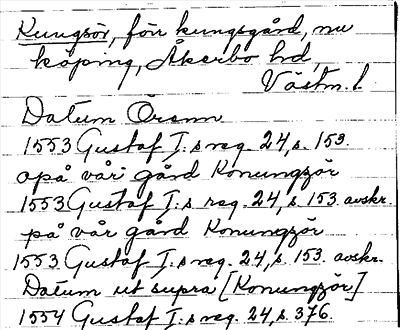 Kungsör, förr kungsgård, nu
köping, Åkerbo hd,
Västm. l.
Datum Örsum
1553 Gustaf I:s reg. 24, s. 153.
opå vår gård Konungzör
1553 Gustaf I:s reg. 24, s. 153. avskr.
på vår gård Konungzör
1553 Gustaf I:s reg. 24, s. 153. avskr.
Datum ut supra [Konungzör]
1554 Gustaf I:s reg. 24, s. 376.